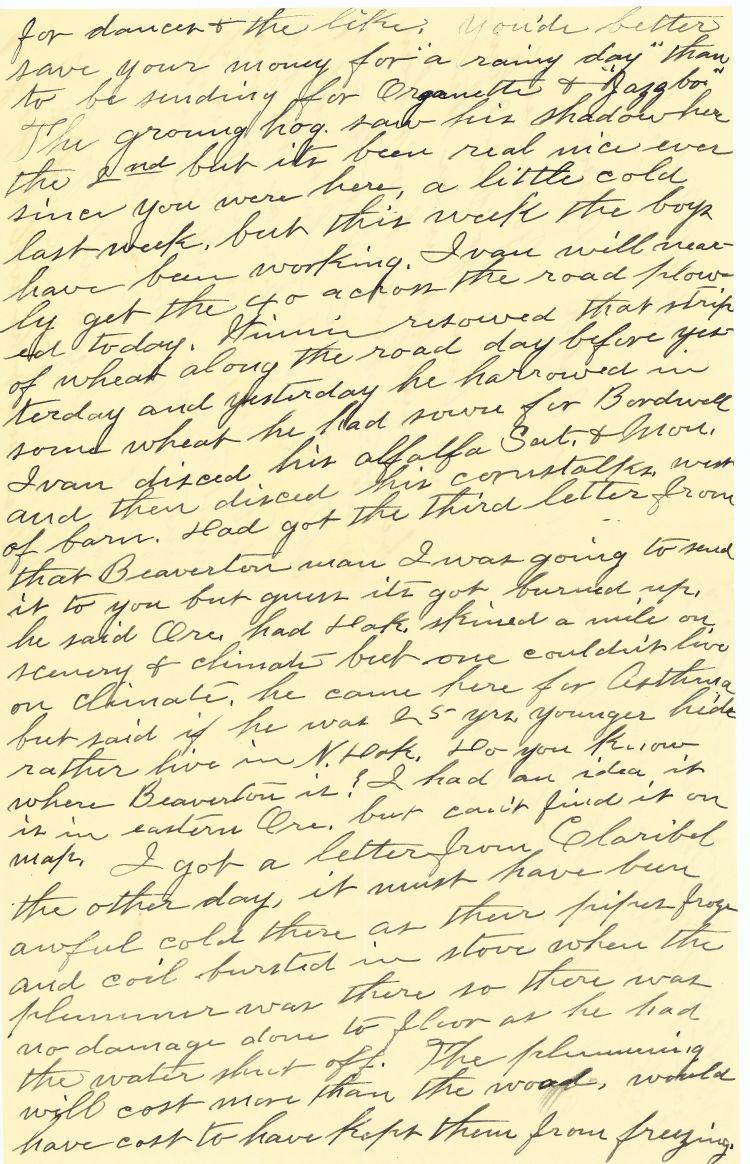 for dances & the like. You'de better
save your money for "a rainy day" than
to be sending for Organette & "Jazzbo"
The groung hog saw his shadow her
the 2nd but it's been real nice ever
since you were here, a little cold
last week, but this week the boys
have been working. Ivan will near-
ly get the 40 across the road plow-
ed today. resowed that strip
of wheat along the road day before yes-
terday and yesterday he harrowed in
some wheat he had sown for Bordwell
Ivan disced his alfalfa Sat. & Mon.
and then disced his cornstalks, west
of barn. Had got the third letter from
that Beaverton man I was going to send
it to you but guess its got burned up,
he said Ore. had Dak. skined a mile on
scenery & climate but one couldn't live
on climate, he came here for Asthma
but said if he was 25 yrs, younger hide
rather live in N. Dak. Do you know
where Beaverton is? I had an idea it
is in eastern Ore. but can't find it on
map. I got a letter from Claribel
the other day, it must have been
awful cold there as their pipes froze
and coil bursted in stove when the
plummer was there so there was
no damage done to floor as he had
the water shut off. The plumming
will cost more than the wood, would
have cost to have kept them from freezing.